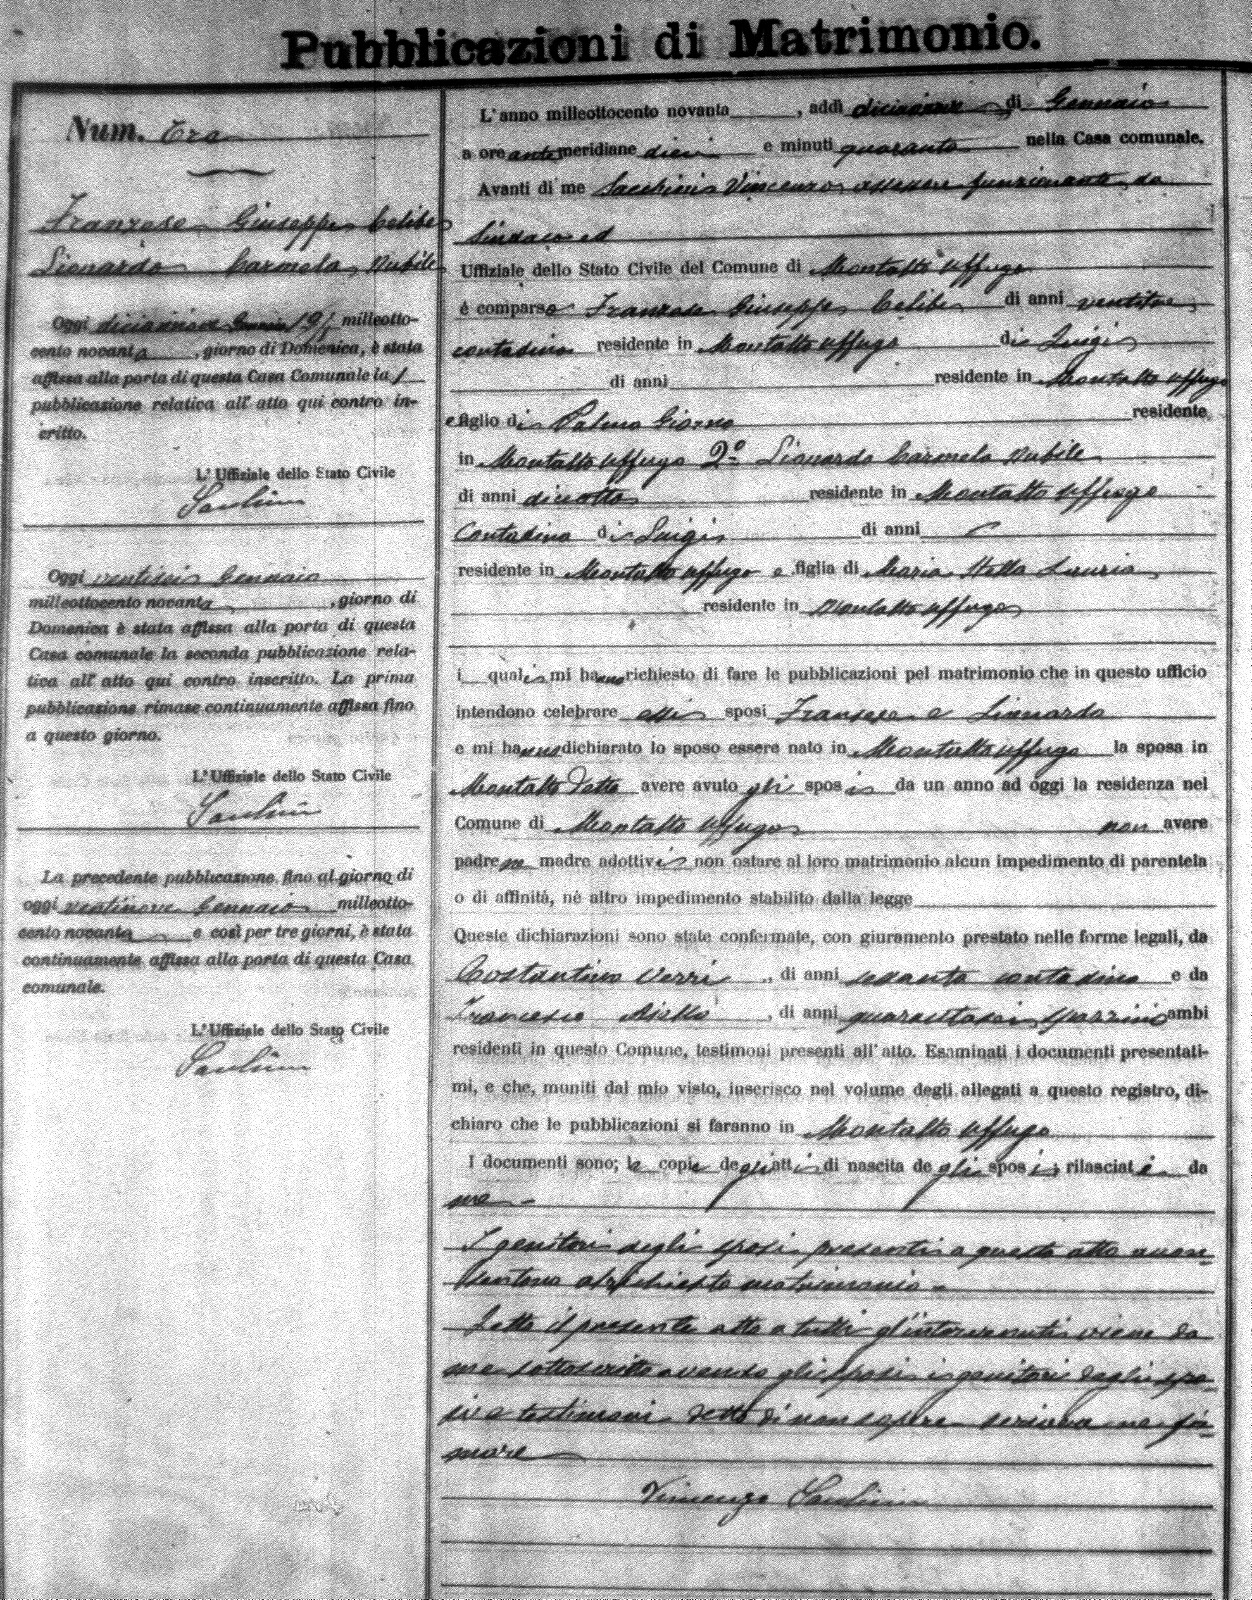 Pubblicazioni di Matrimonio.
Num. Tre
Franzese Giuseppe Celibe
Lionardo Carmela Nubile
Oggi diciannove Gennaio 19/ milleotto-
cento novanta, giorno di Domenica, è stata
affissa alla porta di questa Casa Comunale la 1
pubblicazione relativa all' atto qui contro in-
critto.
L' Uffiziale dello Stato Civile
Oggi ventisei Gennaio
milleottocento novanta, giorno di
Domenica è stata affissa alla porta di questa
Casa comunale la seconda pubblicazione rela-
tiva all' atto qui contro inscritto. La prima
pubblicazione rimase continuamente affissa fino
a questo giorno.
L' Uffiziale dello Stato Civile
La precedente pubblicazione fino al giorno di
oggi ventinove Gennaio milleotto-
cento novanta e così per tre giorni, è stata
continuamente affissa alla porta di questa Casa
comunale.
L' Uffiziale dello Stato Civile
L' anno milleottocento novanta, addì diciannove di Gennaio
a ore antemeridiane dieci e minuti quaranta nella Casa comunale.
Avanti di me Vincenzo assessore funzionante da
Sindaco ed
Uffiziale dello Stato Civile del Comune di Montalto Uffugo
è comparso Franzese Giuseppe Celibe di anni ventitre
contadino residente in Montalto Uffugo di Luigi
di anni residente in Montalto Uffugo
e figlio di Palma Giorno residente
in Montalto Uffugo 2º Lionardo Carmela Nubile
di anni diciotto residente in Montalto Uffugo
Contadina di Luigi di anni
residente in Montalto Uffugo e figlia di Maria Stella Lauria
residente in Montalto Uffugo
i quali mi hanno richiesto di fare le pubblicazioni pel matrimonio che in questo ufficio
intendono celebrare essi sposi Franzese e Lionardo
e mi hanno dichiarato lo sposo essere nato in Montalto Uffugo la sposa in
Montalto detto avere avuto gli sposi da un anno ad oggi la residenza nel
Comune di Montalto Uffugo non avere
padre ne madre adottivi non ostare al loro matrimonio alcun impedimento di parentela
o di affinità, nè altro impedimento stabilito dalla legge
Queste dichiarazioni sono state confermate, con giuramento prestato nelle forme legali, da
Costantino Verri, di anni sessanta contadino e da
Francesco Aiello, di anni quarantasei spazzino ambi
residenti in questo Comune, testimoni presenti all' atto. Esaminati i documenti presentati-
mi, e che, muniti dal mio visto, inserisco nel volume degli allegati a questo registro, di-
chiaro che le pubblicazioni si faranno in Montalto Uffugo
I documenti sono; le copie degli atti di nascita degli sposi; rilasciate da
me -
I genitori degli sposi presenti a questo atto acon-
sentono al richiesto matrimonio -
Letto il presente atto a tutti gl'intervenuti viene da
me sottoscritto avendo gli sposi i genitori degli spo-
si e testimoni detto di non sapere scrivere ne fir-
mare
Vincenzo